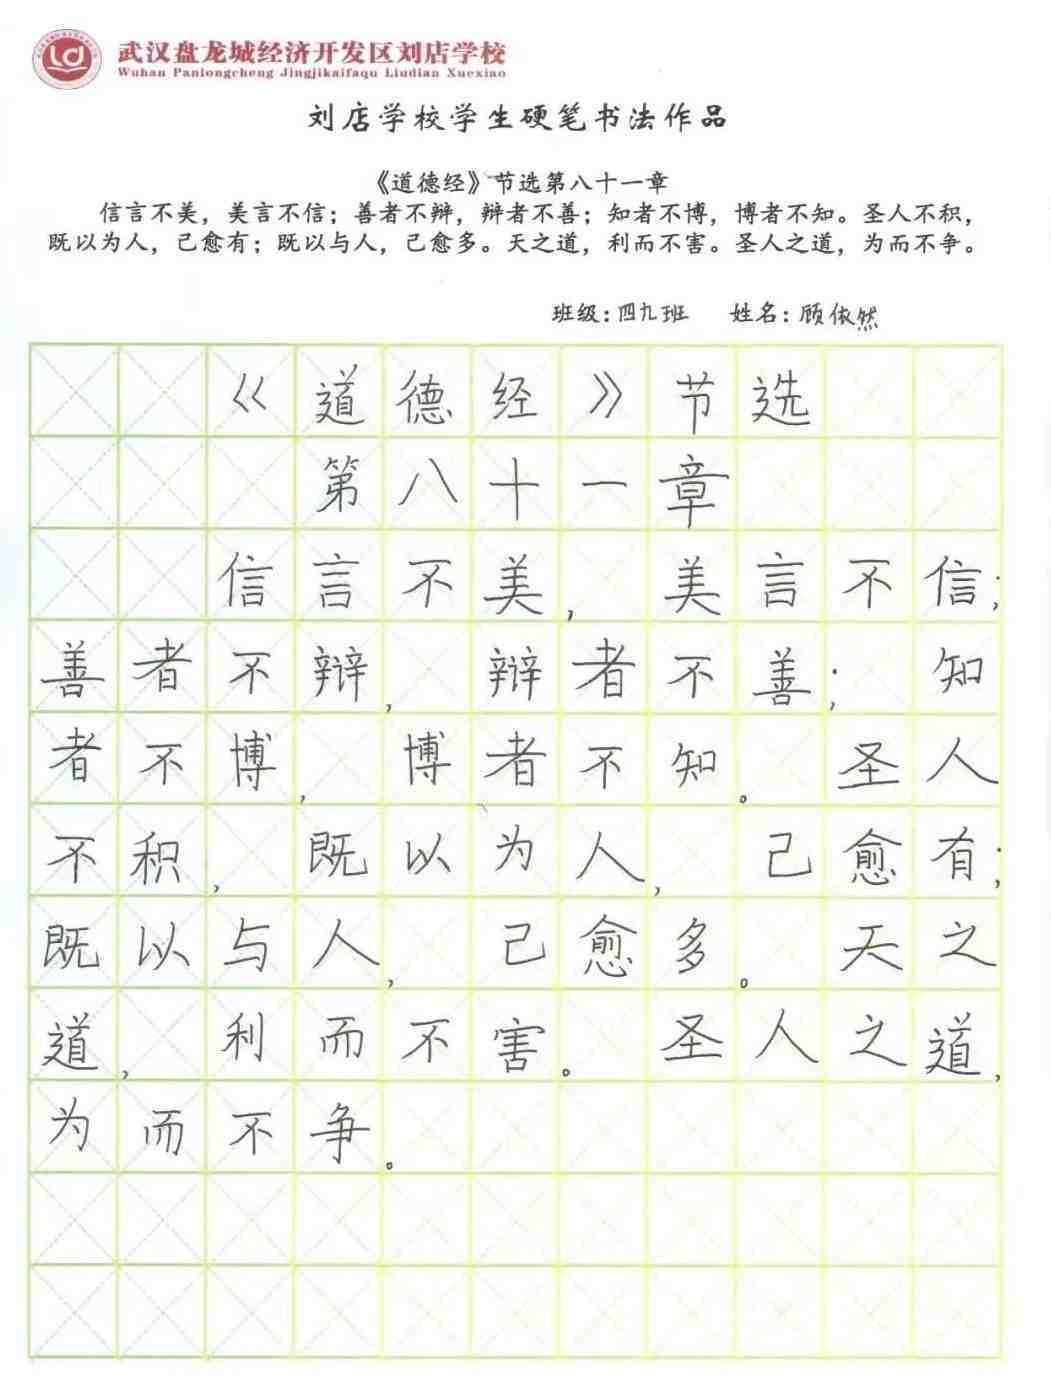 武汉盘龙城经济开发区刘店学校
Wuhan Panlongcheng Jingjikaifaqu Liudian Xuexiao
刘店学校学生硬笔书法作品
《道德经》节选第八十一章
信言不美，美言不信；善者不辩，辩者不善；知者不博，博者不知。圣人不积，
既以为人，己愈有；既以与人，己愈多。天之道，利而不害。圣人之道，为而不争。
班级：四九班 姓名：顾依然
《道德经》节选
第八十一章
信言不美，美言不信；
善者不辩，辩者不善；知
者不博，博者不知。圣人
不积，既以为人，己愈有；
既以与人，己愈多。天之
道，利而不害。圣人之道，
为而不争。